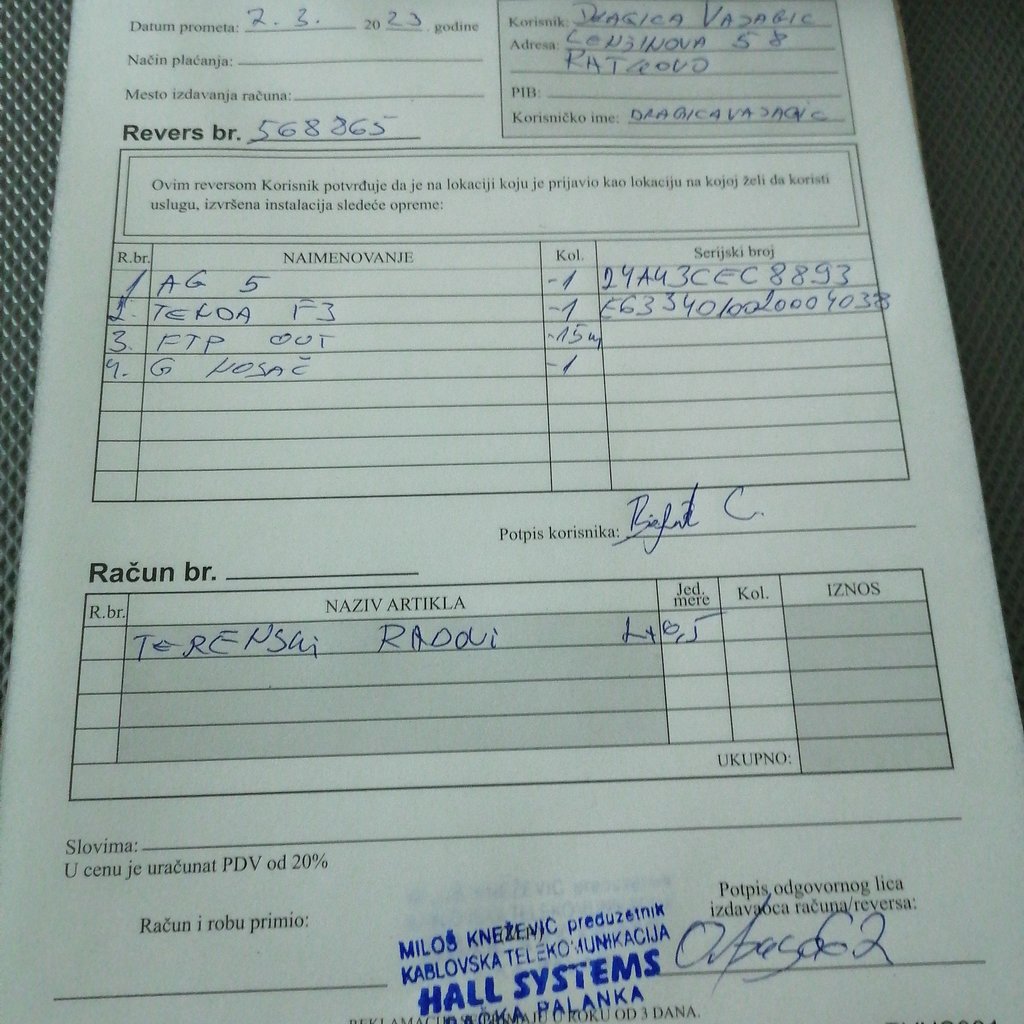 Datum prometa: 2. 3. 2023. godine
Način plaćanja:
Mesto izdavanja računa:
Korisnik: DRAGICA VAJAGIC
Adresa: LENJINOVA 58
RATKOVO
PIB:
Korisničko ime: DRAGICAVAJAGIC
Revers br. 568865
Ovim reversom Korisnik potvrđuje da je na lokaciji koju je prijavio kao lokaciju na kojoj želi da koristi
uslugu, izvršena instalacija sledeće opreme:
R.br. NAIMENOVANJE Kol. Serijski broj
1 AG 5 -1 24A43CEC8893
2. TENDA F3 -1
3. FTP OUT -15m
4. G NOSAČ -1
Potpis korisnika:
Račun br.
R.br. NAZIV ARTIKLA Jed. mere Kol. IZNOS
TERENSKI RADOVI
UKUPNO:
Slovima:
U cenu je uračunat PDV od 20%
Račun i robu primio:
Potpis odgovornog lica
izdavaoca računa/reversa:
MILOŠ KNEŽEVIC preduzetnik
KABLOVSKA TELEKOMUNIKACIJA
HALL SYSTEMS
BAČKA PALANKA
U ROKU OD 3 DANA.